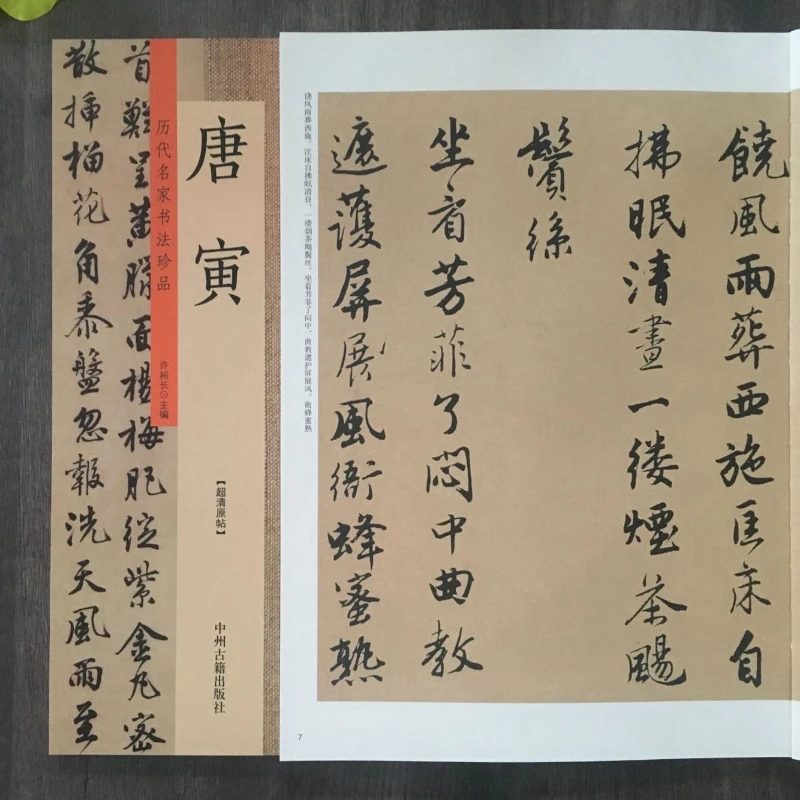 首難呈黃臑面楊梅肥綻紫金丸密
散插榴花角黍盤忽報洗天風雨至
历代名家书法珍品
许裕长⊙主编
唐寅
【超清原帖】
中州古籍出版社
饶风雨葬西施。匡床自拂眠清昼,一缕烟茶飏鬓丝。坐看芳菲了闷中,曲教遮护屏展风。衙蜂蜜熟
饒風雨葬西施匡床自
拂眠清晝一缕煙茶颺
鬢絲
坐看芳菲了悶中曲教
遮護屏展風衙蜂蜜熟
7